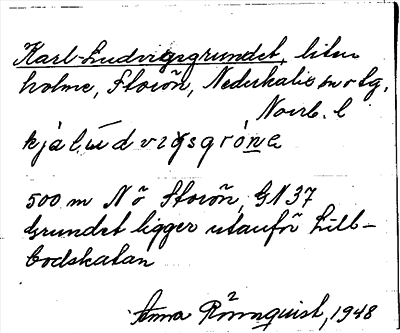 Karl-Ludvigsgrundet, liten
holme, Storön, Nederkalix sn o tg,
Norrb. l
kjàlúdvigsgrone
500 m N ö Storön, GN 37
Grundet ligger utanför Lill-
bodskatan
Anna Rönnquist, 1948